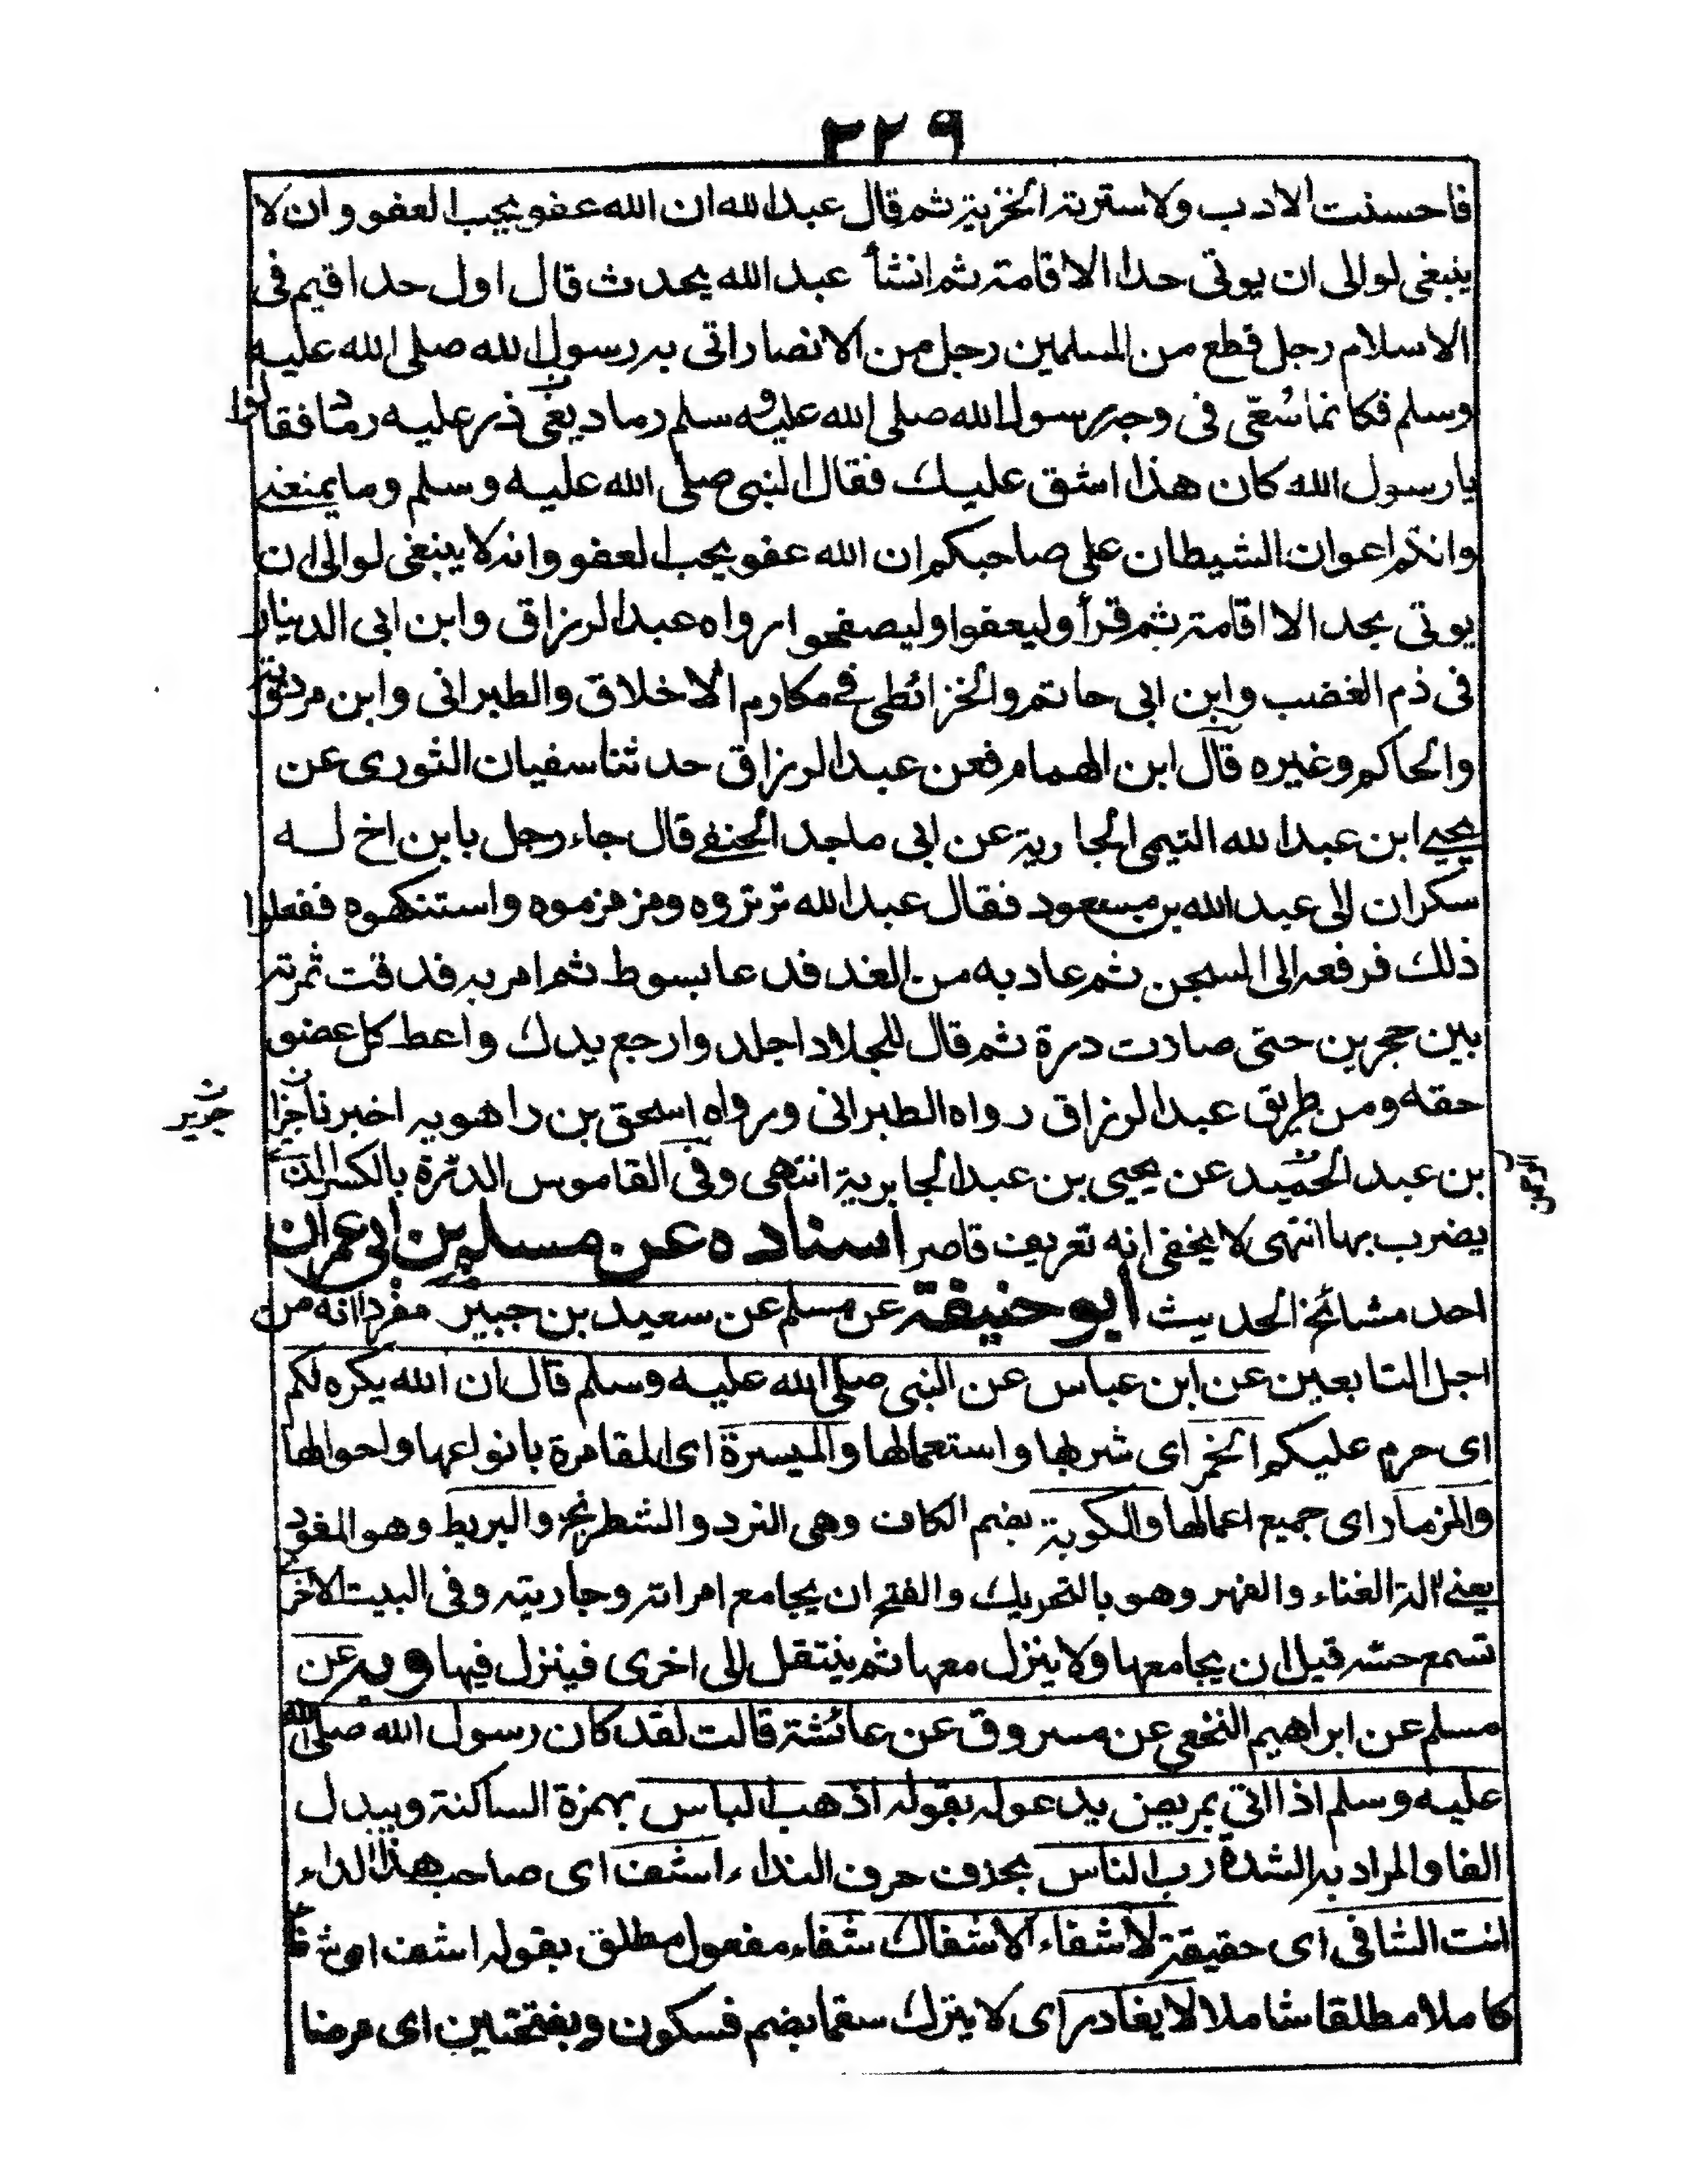 ٢٢٩
فاحسنت الادب ولا سترته الخزية ثم قال عبد الله ان الله عفو يحب العفو وان لا
ينبغى لوالى ان يوتى حدا الا اقامته ثم انشأ عبد الله يحدث قال اول حد اقيم فى
الاسلام رجل قطع من المسلمين رجل من الانصار اتى به رسول الله صلى الله عليه
وسلم فكانما سُقّى فى وجه رسول الله صلى الله عليه وسلم رماد يعنى ذر عليه رمادا فقالوا
يا رسول الله كان هذا اشق عليك فقال النبى صلى الله عليه وسلم وما يمنعنى
وانتم اعوان الشيطان على صاحبكم ان الله عفو يحب العفو وانه لا ينبغى لوالى ان
يوتى بحد الا اقامته ثم قرأ وليعفوا وليصفحوا رواه عبد الرزاق وابن ابى الدنيا
فى ذم الغضب وابن ابى حاتم والخرائطى فى مكارم الاخلاق والطبرانى وابن مردويه
والحاكم وغيره قال ابن الهمام فعن عبد الرزاق حدثنا سفيان الثورى عن
يحيى ابن عبد الله التيمى الجابرية عن ابى ماجد الحنفى قال جاء رجل بابن اخ له
سكران الى عبد الله بن مسعود فقال عبد الله ترتروه ومزمزموه واستنكهوه ففعلوا
ذلك فرفعه الى السجن ثم عاد به من الغد فدعا بسوط ثم امر به فدقت ثمرته
بين حجرين حتى صارت درة ثم قال للجلاد اجلد وارجع يدك واعط كل عضو
حقه ومن طريق عبد الرزاق رواه الطبرانى ورواه اسحق بن راهويه اخبرنا
جرير
بن عبد الحميد عن يحيى بن عبد الجابرية انتهى وفى القاموس الدرة بالكسر التى
يضرب بها انتهى لا يخفى انه تعريف قاصر اسناده عن مسلم بن ابى عمران
احد مشائخ الحديث ابو حنيفة عن مسلم عن سعيد بن جبير مفردا انه من
اجل التابعين عن ابن عباس عن النبى صلى الله عليه وسلم قال ان الله يكره لكم
اى حرم عليكم الخمر اى شربها واستعمالها والميسرة اى المقامرة بانواعها واحوالها
والمزمار اى جميع اعمالها والكوبة بضم الكاف وهى النرد والشطرنج والبربط وهو المغود
يعنى الة الغناء والفهر وهو بالتحريك والفتح ان يجامع امراته وجاريته وفى البيت الاخرى
تسمع حسه قيل ان يجامعها ولا ينزل معها ثم ينتقل الى اخرى فينزل فيها وبه عن
مسلم عن ابراهيم النخعى عن مسروق عن عائشة قالت لقد كان رسول الله صلى الله
عليه وسلم اذا اتى بمريض يدعو له بقوله اذهب الباس بهمزة الساكنة ويبدل
الفا والمراد به الشدة رب الناس بحذف حرف النداء اشف اى صاحب هذا الداء
انت الشافى اى حقيقة لا شفاء الا شفاك شفاء مفعول مطلق بقوله اشف اى شفاء
كاملا مطلقا شاملا لا يغادر اى لا يترك سقما بضم فسكون وبفتحتين اى مرضا